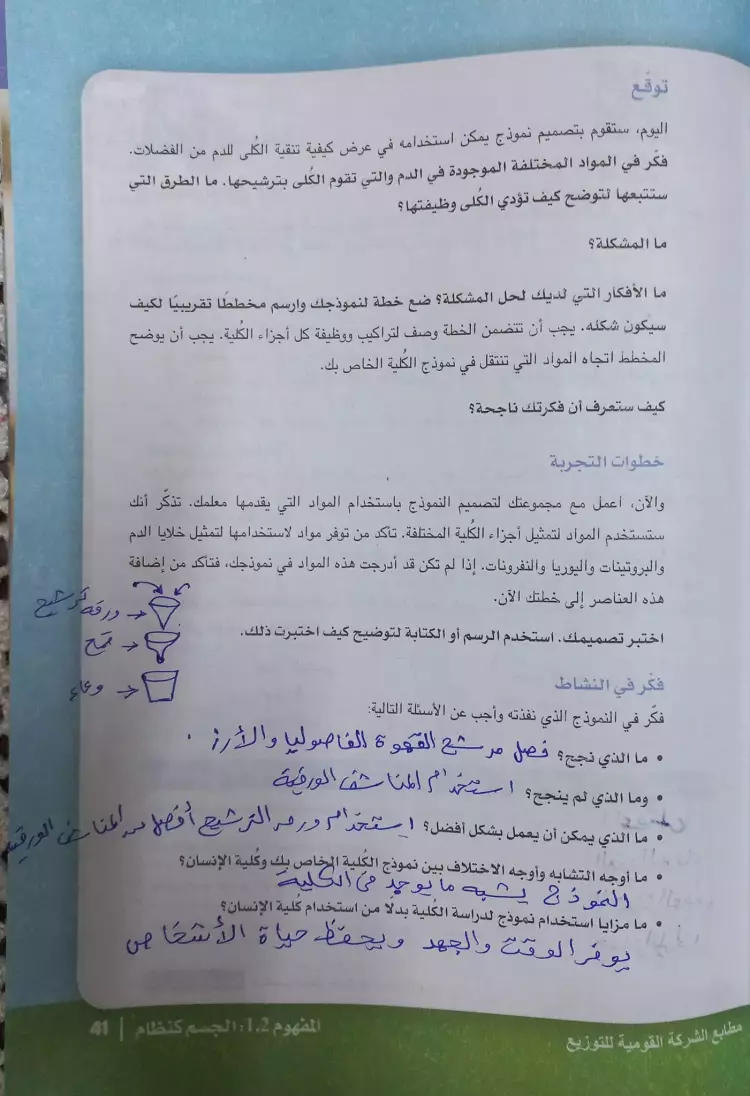 توقّع
اليوم، ستقوم بتصميم نموذج يمكن استخدامه في عرض كيفية تنقية الكُلى للدم من الفضلات.
فكّر في المواد المختلفة الموجودة في الدم والتي تقوم الكُلى بترشيحها. ما الطرق التي
ستتبعها لتوضح كيف تؤدي الكُلى وظيفتها؟
ما المشكلة؟
ما الأفكار التي لديك لحل المشكلة؟ ضع خطة لنموذجك وارسم مخططًا تقريبيًا لكيف
سيكون شكله. يجب أن تتضمن الخطة وصف لتراكيب ووظيفة كل أجزاء الكُلية. يجب أن يوضح
المخطط اتجاه المواد التي تنتقل في نموذج الكُلية الخاص بك.
كيف ستعرف أن فكرتك ناجحة؟
خطوات التجربة
والآن، اعمل مع مجموعتك لتصميم النموذج باستخدام المواد التي يقدمها معلمك. تذكّر أنك
ستستخدم المواد لتمثيل أجزاء الكُلية المختلفة. تأكد من توفر مواد لاستخدامها لتمثيل خلايا الدم
والبروتينات واليوريا والنفرونات. إذا لم تكن قد أدرجت هذه المواد في نموذجك، فتأكد من إضافة
هذه العناصر إلى خطتك الآن.
ورقة ترشيح
اختبر تصميمك. استخدم الرسم أو الكتابة لتوضيح كيف اختبرت ذلك.
قمح
وعاء
فكّر في النشاط
فكّر في النموذج الذي نفذته وأجب عن الأسئلة التالية:
• ما الذي نجح؟ فصل مرشح القهوة الفاصوليا والأرز.
• وما الذي لم ينجح؟ استخدام المناشف الورقية
• ما الذي يمكن أن يعمل بشكل أفضل؟ استخدام ورق الترشيح أفضل من المناشف الورقية
• ما أوجه التشابه وأوجه الاختلاف بين نموذج الكُلية الخاص بك وكُلية الإنسان؟
النموذج يشبه ما يوجد في الكلية
• ما مزايا استخدام نموذج لدراسة الكُلية بدلًا من استخدام كُلية الإنسان؟
يوفر الوقت والجهد ويحفظ حياة الأشخاص
المفهوم 1.2: الجسم كنظام | 41
مطابع الشركة القومية للتوزيع